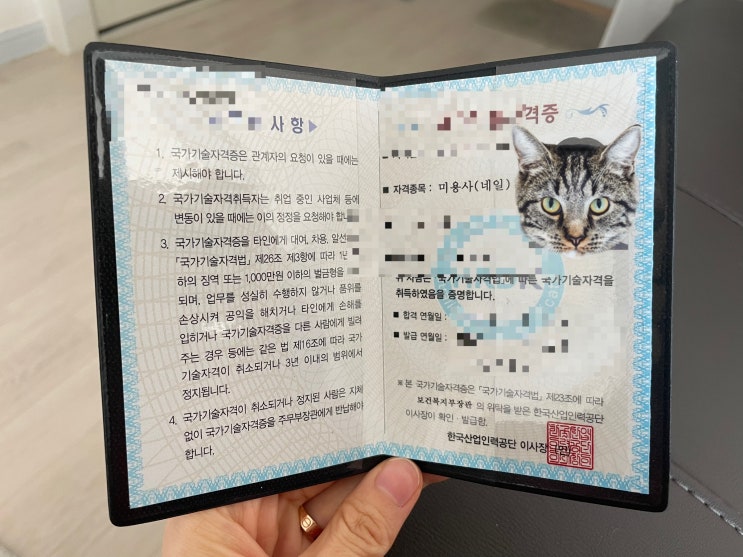 사 항 ▶
1. 국가기술자격증은 관계자의 요청이 있을 때에는
제시해야 합니다.
2. 국가기술자격취득자는 취업 중인 사업체 등에
변동이 있을 때에는 이의 정정을 요청해야 합니
3. 국가기술자격증을 타인에게 대여, 차용, 알선
「국가기술자격법」 제26조 제3항에 따라 1년
하의 징역 또는 1,000만원 이하의 벌금형을
되며, 업무를 성실히 수행하지 않거나 품위를
손상시켜 공익을 해치거나 타인에게 손해를
입히거나 국가기술자격증을 다른 사람에게 빌려
주는 경우 등에는 같은 법 제16조에 따라 국가
기술자격이 취소되거나 3년 이내의 범위에서
정지됩니다.
4. 국가기술자격이 취소되거나 정지된 사람은 지체
없이 국가기술자격증을 주무부장관에게 반납해야
합니다.
격증
■ 자격종목 : 미용사(네일)
「국가기술자격법」에 따른 국가기술자격을
취득하였음을 증명합니다.
■ 합격 연월일 :
■ 발급 연월일 :
※ 본 국가기술자격증은 「국가기술자격법」 제23조에 따라
보건복지부장관 의 위탁을 받은 한국산업인력공단
이사장이 확인 · 발급함.
한국산업인력공단 이사장